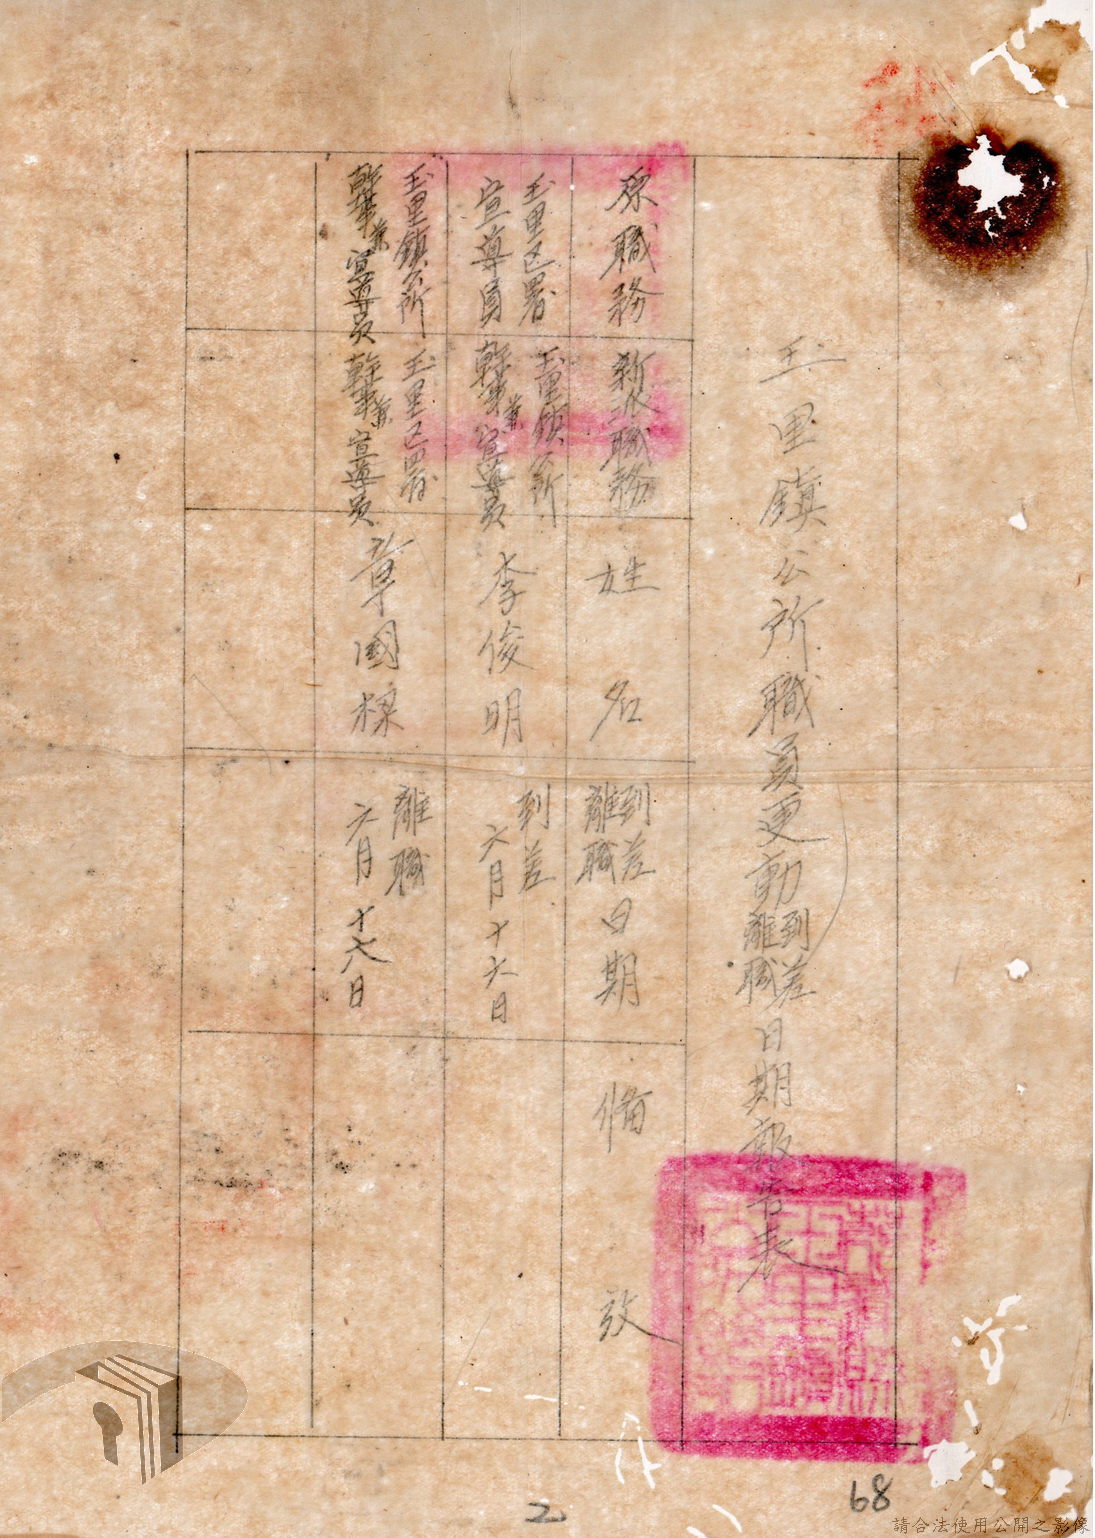 玉里鎮公所職員更動到差離職日期報告表
原職務
新派職務
姓名
到差離職日期
備攷
玉里区署
宣導員
玉里鎮公所
幹事兼宣導員
李俊明
到差
六月十六日
玉里鎮公所
幹事兼宣導員
玉里区署
幹事兼宣導員
章國樑
離職
六月十六日
2
68
請合法使用公開之影像